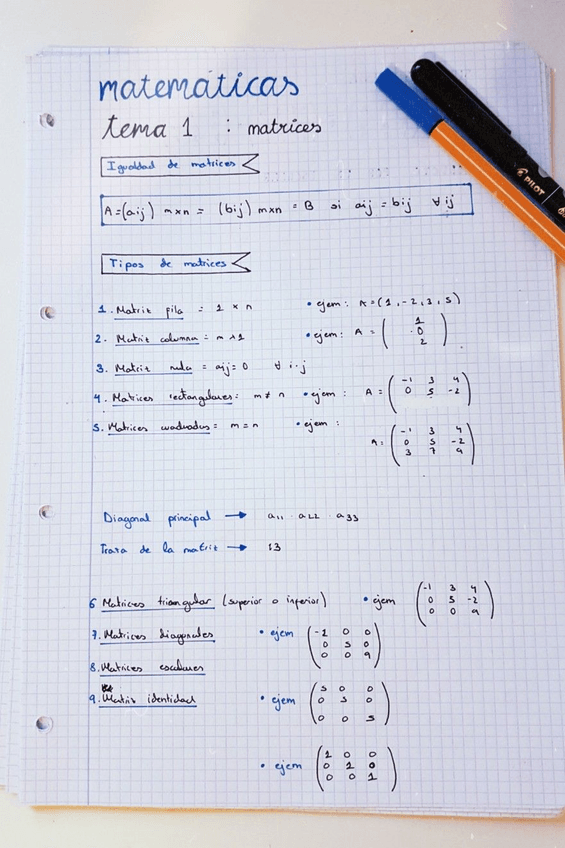 matemáticas
tema 1 : matrices
Igualdad de matrices
A=(aij) m×n = (bij) m×n = B si aij = bij ∀ ij
Tipos de matrices
1. Matriz fila = 1 × n • ejem: A=(1,-2,3,5)
2. Matriz columna = m × 1 • ejem: A = (1
0
2)
3. Matriz nula = aij=0 ∀ i.j
4. Matrices rectangulares: m≠n • ejem: A = (-1 3 4
0 5 -2)
5. Matrices cuadradas = m=n • ejem:
A= (-1 3 4
0 5 -2
3 7 9)
Diagonal principal → a11 . a22 . a33
Traza de la matriz → 13
6 Matrices triangular (superior o inferior) • ejem (-1 3 4
0 5 -2
0 0 9)
7. Matrices diagonales • ejem (-1 0 0
0 5 0
0 0 9)
8. Matrices escalares
9. Matriz identidad • ejem (5 0 0
0 5 0
0 0 5)
• ejem (1 0 0
0 1 0
0 0 1)
PILOT